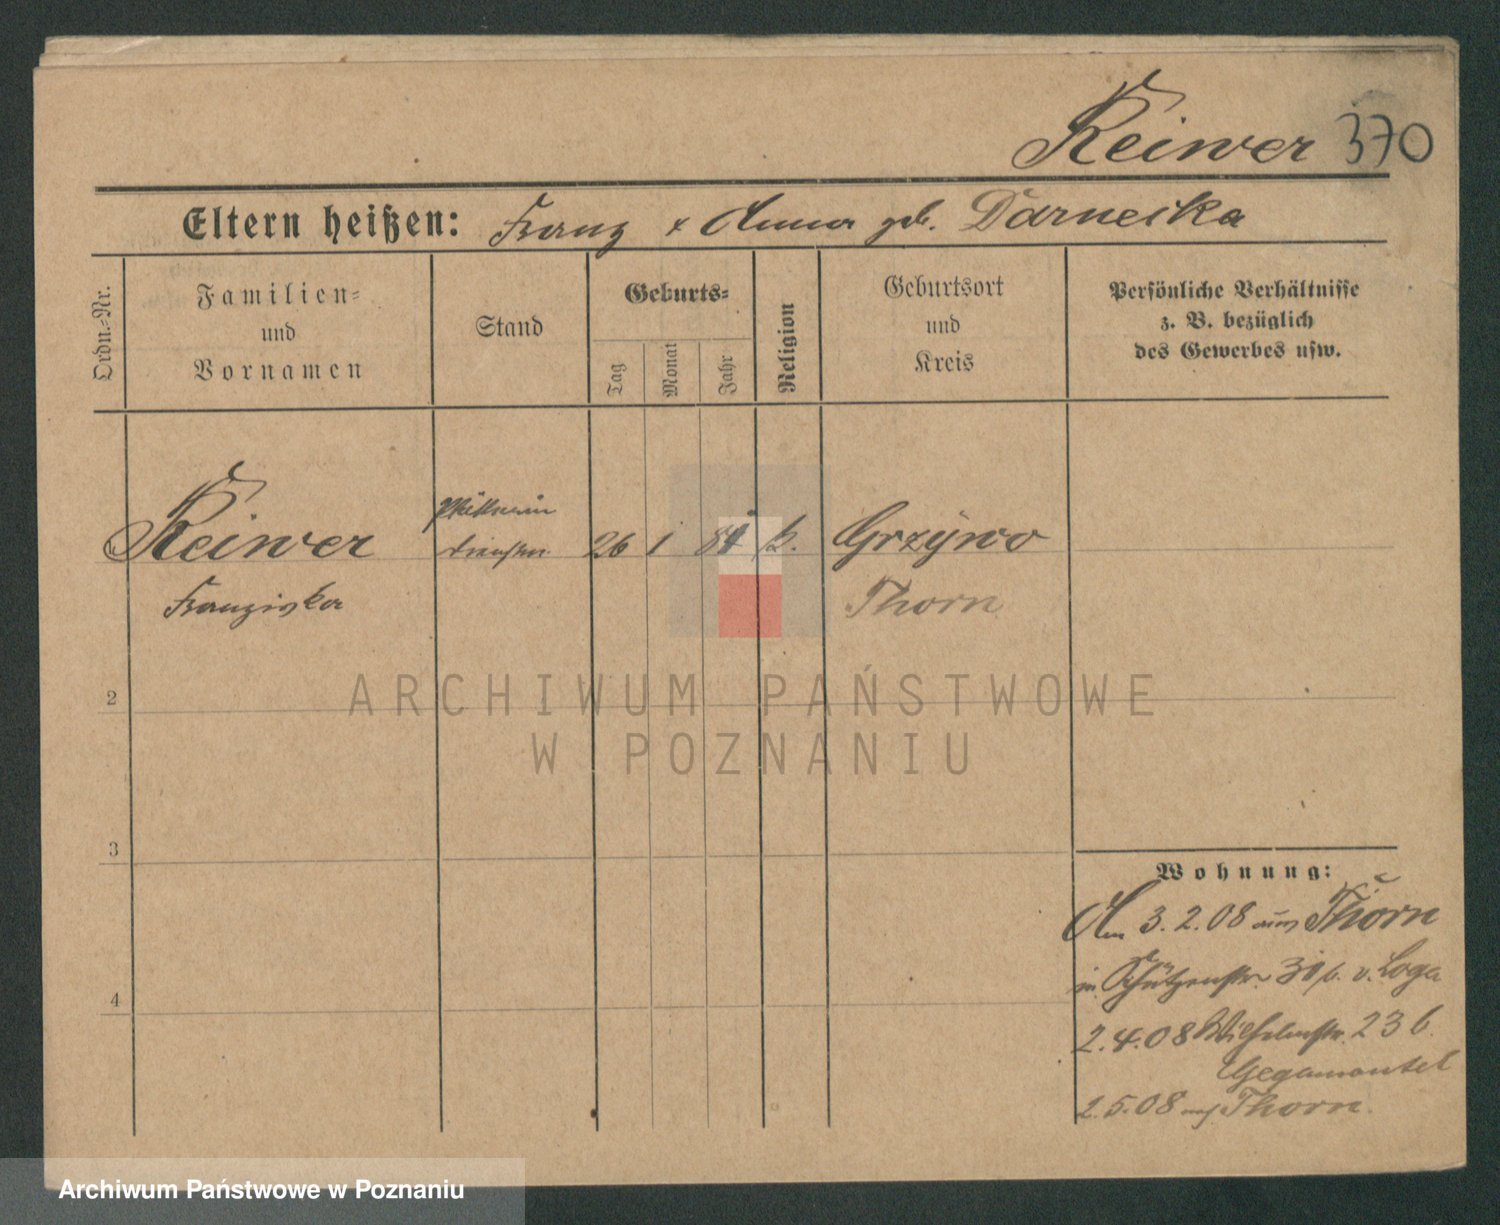 Reiwer 370
Eltern heißen: Franz & Anna geb. Darnecka
Ordn.-Nr.
Familien-
und
Vornamen
Stand
Geburts-
Tag
Monat
Jahr
Religion
Geburtsort
und
Kreis
Persönliche Verhältnisse
z. B. bezüglich
des Gewerbes usw.
Reiwer 26 1 84 k. Grzywo
Franziska Thorn
2
3
4
ARCHIWUM PAŃSTWOWE
W POZNANIU
Wohnung:
Am 3.2.08 aus Thorn
in Schützenstr. b. v. Loga
2.4.08 Wilhelmstr. 23 b.
Gegamantel
2.5.08 nach Thorn.
Archiwum Państwowe w Poznaniu